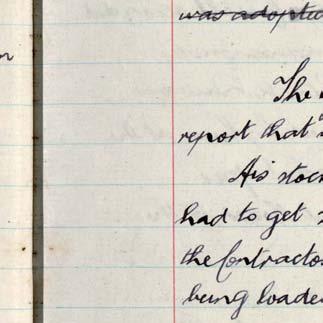 was adopted
The
report that
His stock
had to get
the Contractor
being loaded